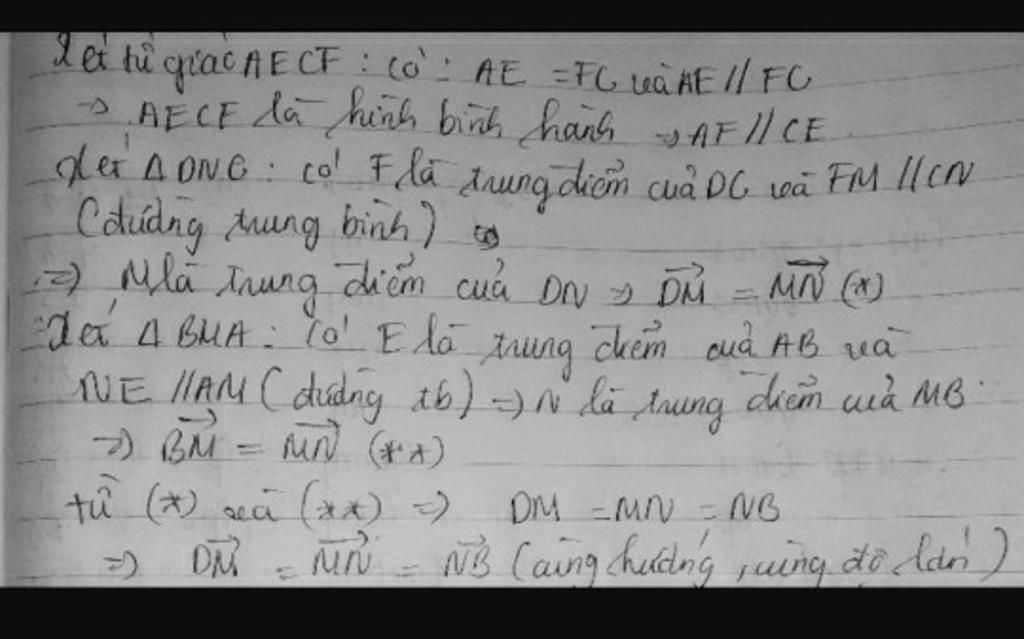 Xét tứ giác AECF : có : AE = FC và AE // FC
→ AECF là hình bình hành → AF // CE
Xét Δ DNC : có F là trung điểm của DC và FM // CN
(đường trung bình)
=> M là trung điểm của DN => \overrightarrow{DM} = \overrightarrow{MN} (*)
Xét Δ BMA : có E là trung điểm của AB và
NE // AM (đường tb) => N là trung điểm của MB
=> \overrightarrow{BM} = \overrightarrow{MN} (**)
từ (*) và (**) => DM = MN = NB
=> \overrightarrow{DM} = \overrightarrow{MN} = \overrightarrow{NB} (cùng hướng, cùng độ lớn)